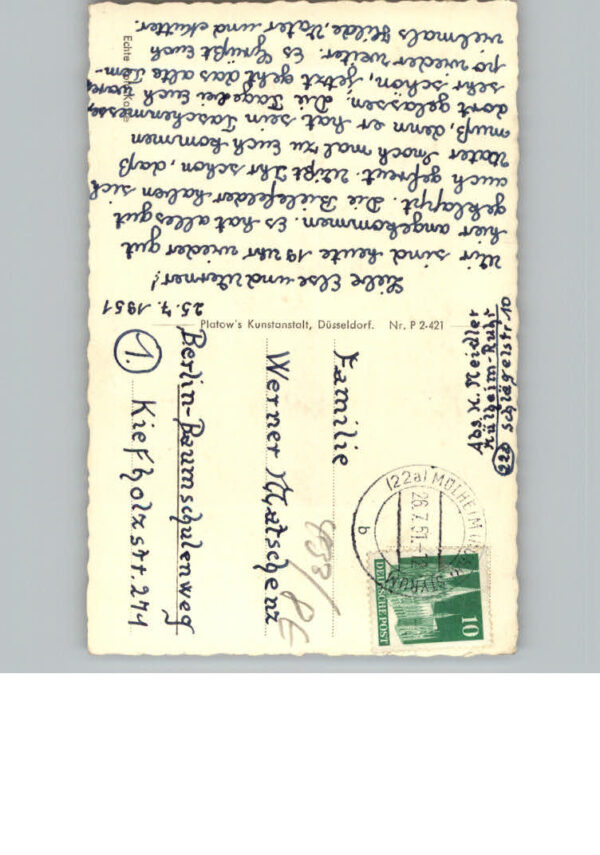 25.7.1951
Liebe Else und Werner!
Wir sind heute 19 Uhr wieder gut
hier angekommen. Es hat alles gut
geklappt. Die Bielefelder haben sich
auch gefreut. Wißt Ihr schon, daß
Vater noch mal zu Euch kommen
muß, denn er hat sein Taschenmesser
dort gelassen. Die Tage bei Euch waren
sehr schön, jetzt geht das alte Tem-
po wieder weiter. Es grüßt Euch
vielmals Hilde, Vater und Mutter.
Echte
Platow's Kunstanstalt, Düsseldorf. Nr. P 2-421
Abs. H. Neidler
Mülheim-Ruhr
(22a) Schlägelstr. 10
(22a) MÜLHEIM (RUHR) STYRUM
26.7.51.-12
b
10
DEUTSCHE POST
Familie
Werner Matschenz
Berlin-Baumschulenweg
1. Kiefholzstr. 271